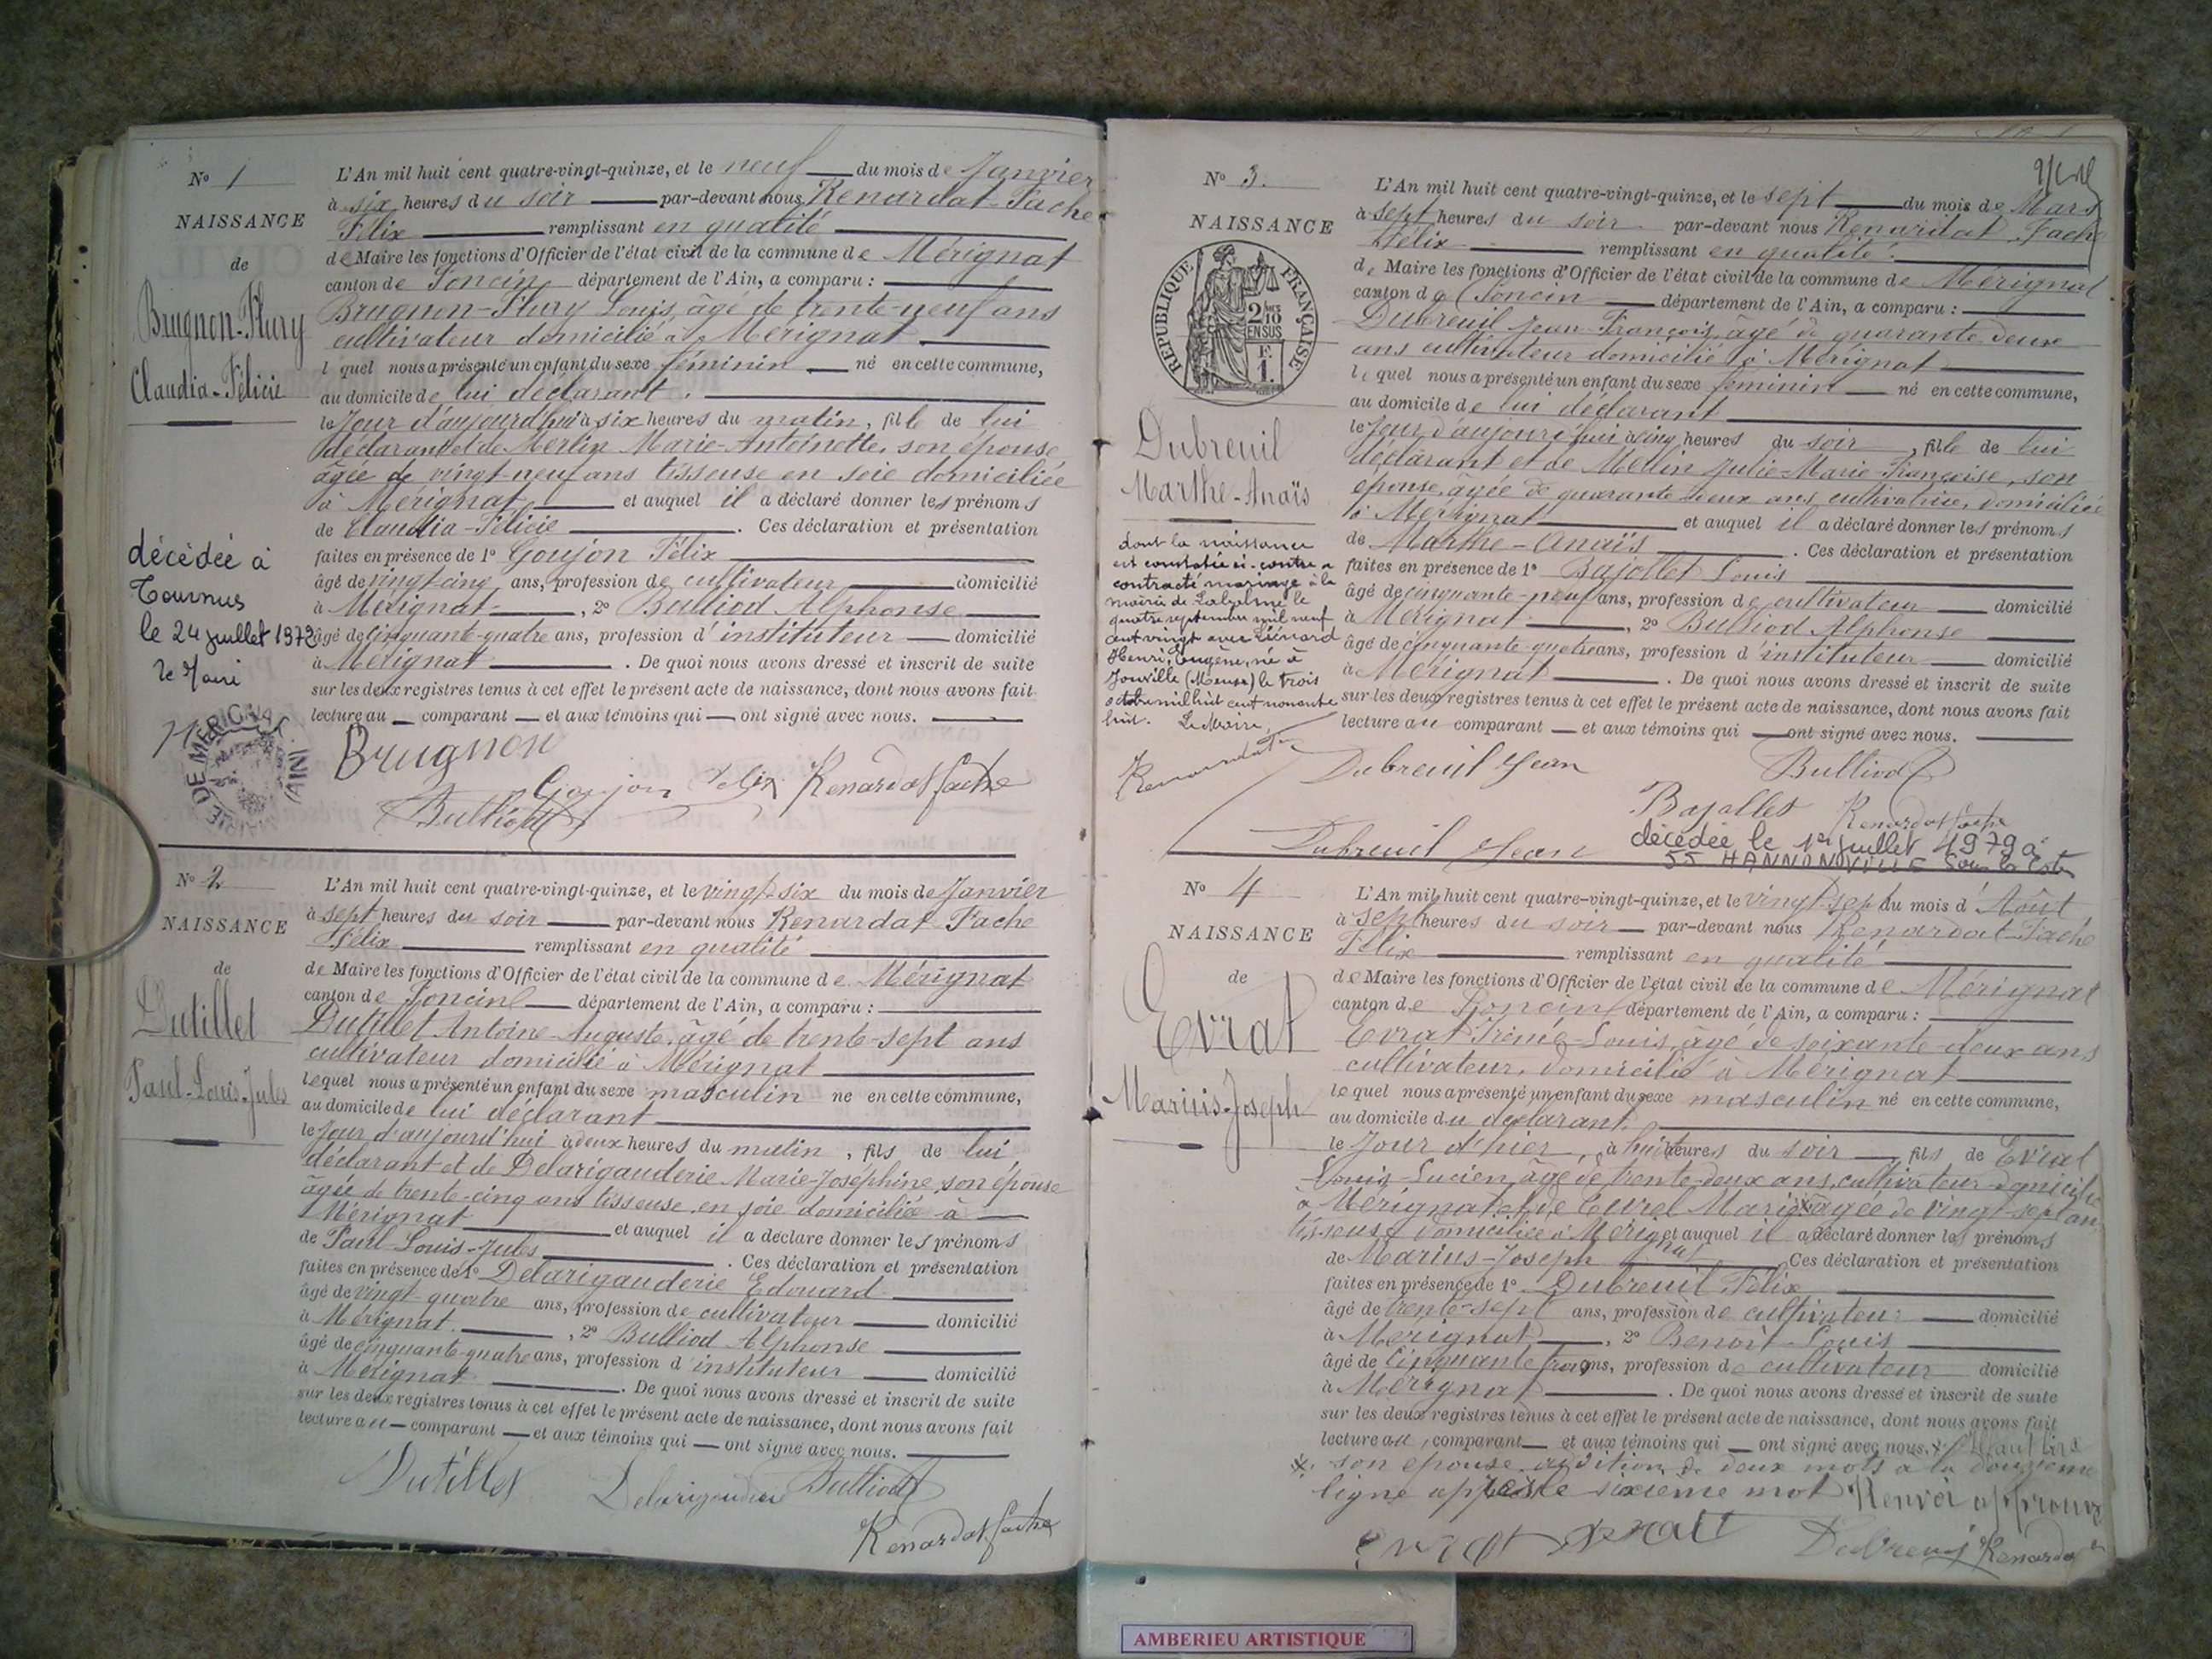 N° 1
NAISSANCE
de
Brugnon-Flury
Claudia-Félicie
décédée à
Tournus
le 24 juillet 1972
le Maire
MAIRIE DE MERIGNAT (AIN)
L'An mil huit cent quatre-vingt-quinze, et le neuf du mois de Janvier
à six heures du soir par-devant nous Renardat-Fache
Félix remplissant en qualité
de Maire les fonctions d'Officier de l'état civil de la commune de Mérignat
canton de Poncin département de l'Ain, a comparu :
Brugnon-Flury Louis, âgé de trente-neuf ans
cultivateur domicilié à Mérignat
l quel nous a présenté un enfant du sexe féminin né en cette commune,
au domicile de lui déclarant.
le Jour d'aujourd'hui à six heures du matin, fille de lui
déclarant et de Merlin Marie-Antoinette, son épouse
âgée de vingt-neuf ans tisseuse en soie domiciliée
à Mérignat, et auquel il a déclaré donner les prénoms
de Claudia-Félicie. Ces déclaration et présentation
faites en présence de 1° Goujon Félix
âgé de vingt-cinq ans, profession de cultivateur domicilié
à Mérignat, 2° Bulliod Alphonse
âgé de cinquante-quatre ans, profession d'instituteur domicilié
à Mérignat. De quoi nous avons dressé et inscrit de suite
sur les deux registres tenus à cet effet le présent acte de naissance, dont nous avons fait
lecture au comparant et aux témoins qui ont signé avec nous.
Brugnon
Goujon Félix Renardat fache
Bulliod
N° 2
NAISSANCE
de
Dutillet
Paul-Louis-Jules
L'An mil huit cent quatre-vingt-quinze, et le vingt-six du mois de Janvier
à sept heures du soir par-devant nous Renardat-Fache
Félix remplissant en qualité
de Maire les fonctions d'Officier de l'état civil de la commune de Mérignat
canton de Poncin département de l'Ain, a comparu :
Dutillet Antoine-Auguste, âgé de trente-sept ans
cultivateur domicilié à Mérignat
lequel nous a présenté un enfant du sexe masculin né en cette commune,
au domicile de lui déclarant
le Jour d'aujourd'hui à deux heures du matin, fils de lui
déclarant et de Delarigauderie Marie-Joséphine, son épouse
âgée de trente-cinq ans tisseuse en soie domiciliée à
Mérignat et auquel il a déclaré donner les prénoms
de Paul-Louis-Jules. Ces déclaration et présentation
faites en présence de 1° Delarigauderie Edouard
âgé de vingt quatre ans, profession de cultivateur domicilié
à Mérignat, 2° Bulliod Alphonse
âgé de cinquante-quatre ans, profession d'instituteur domicilié
à Mérignat. De quoi nous avons dressé et inscrit de suite
sur les deux registres tenus à cet effet le présent acte de naissance, dont nous avons fait
lecture au comparant et aux témoins qui ont signé avec nous.
Dutillet Delarigauderie Bulliod
Renardat fache
N° 3.
NAISSANCE
RÉPUBLIQUE FRANÇAISE
2/10 EN SUS
Dubreuil
Marthe-Anaïs
dont la naissance
est constatée ci-contre a
contracté mariage à la
mairie de le
quatre septembre mil neuf
cent vingt avec Liénard
Henri, Eugène, né à
Jonville (Meuse) le trois
octobre mil huit cent nonante
huit. Le Maire,
Renardat
L'An mil huit cent quatre-vingt-quinze, et le sept du mois de Mars
à sept heures du soir par-devant nous Renardat Fache
Félix remplissant en qualité
de Maire les fonctions d'Officier de l'état civil de la commune de Mérignat
canton de Poncin département de l'Ain, a comparu :
Dubreuil Jean-François, âgé de quarante deux
ans cultivateur domicilié à Mérignat
lequel nous a présenté un enfant du sexe féminin né en cette commune,
au domicile de lui déclarant
le Jour d'aujourd'hui à cinq heures du soir, fille de lui
déclarant et de Merlin Julie-Marie-Françoise, son
épouse, agée de quarante deux ans, cultivatrice, domiciliée
à Mérignat et auquel il a déclaré donner les prénoms
de Marthe-Anaïs. Ces déclaration et présentation
faites en présence de 1° Bajollet Louis
âgé de cinquante-neuf ans, profession de cultivateur domicilié
à Mérignat, 2° Bulliod Alphonse
âgé de cinquante-quatre ans, profession d'instituteur domicilié
à Mérignat. De quoi nous avons dressé et inscrit de suite
sur les deux registres tenus à cet effet le présent acte de naissance, dont nous avons fait
lecture au comparant et aux témoins qui ont signé avec nous.
Dubreuil Jean Bulliod
Bajollet Renardat fache
Dubreuil Jean
décédée le 1er juillet 1979 à
55 HANNONVILLE Sous les Côtes
N° 4
NAISSANCE
de
Evrat
Marius-Joseph
L'An mil huit cent quatre-vingt-quinze, et le vingt-sept du mois d'Août
à sept heures du soir par-devant nous Renardat-Fache
Félix remplissant en qualité
de Maire les fonctions d'Officier de l'état civil de la commune de Mérignat
canton de Poncin département de l'Ain, a comparu :
Evrat Irené-Louis, âgé de soixante-deux ans
cultivateur, domicilié à Mérignat
lequel nous a présenté un enfant du sexe masculin né en cette commune,
au domicile du déclarant.
le Jour d'hier, à huit heures du soir, fils de Evrat
Louis-Lucien, âgé de trente-deux ans, cultivateur domicilié
à Mérignat et de Marie âgée de vingt-sept ans
tisseuse domiciliée à Mérignat et auquel il a déclaré donner les prénoms
de Marius-Joseph Ces déclaration et présentation
faites en présence de 1° Dubreuil Félix
âgé de trente-sept ans, profession de cultivateur domicilié
à Mérignat, 2° Benoit-Louis
âgé de cinquante trois ans, profession de cultivateur domicilié
à Mérignat. De quoi nous avons dressé et inscrit de suite
sur les deux registres tenus à cet effet le présent acte de naissance, dont nous avons fait
lecture au comparant et aux témoins qui ont signé avec nous. Il faut lire
son épouse addition de deux mots à la douzième
ligne après le sixième mot Renvoi approuvé
Evrat Dubreuil Renardat
AMBERIEU ARTISTIQUE